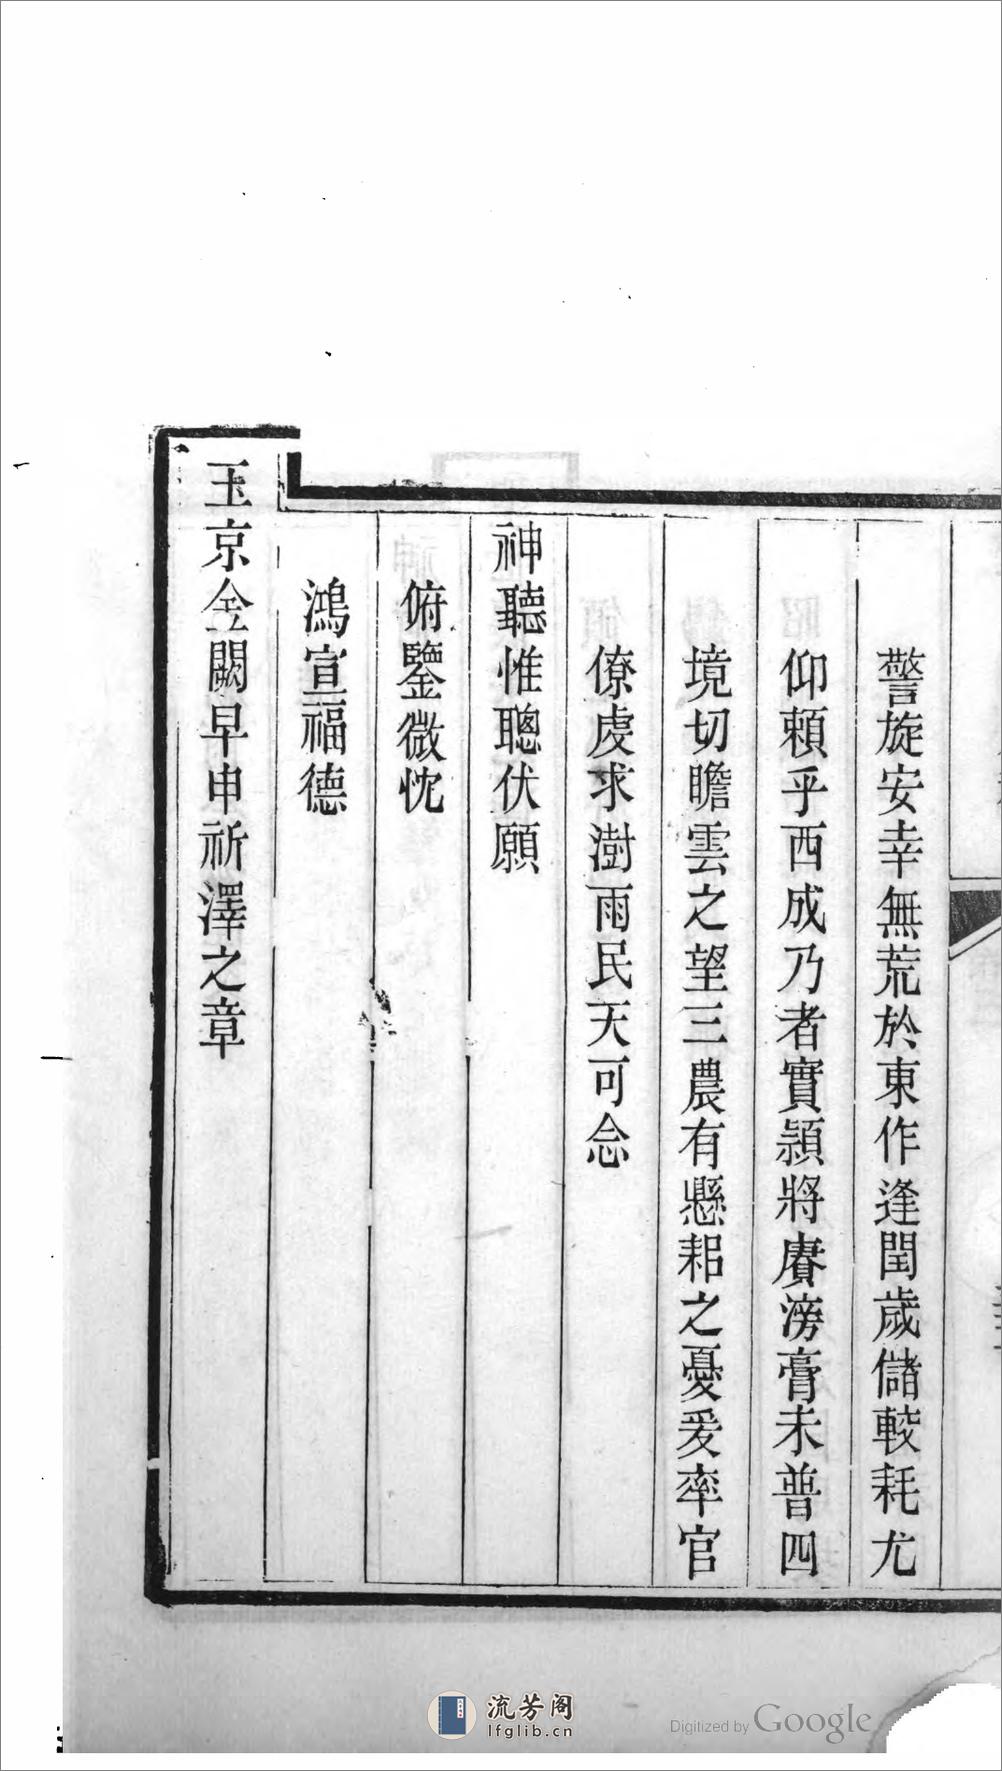 警旋安幸無荒於東作逢閏歲儲較耗尤
仰賴乎西成乃者實穎將賡滂膏未普四
境切瞻雲之望三農有懸耜之憂爰率官
僚虔求澍雨民天可念
神聽惟聰伏願
俯鑒微忱
鴻宣福德
玉京金闕早申祈澤之章
流芳阁
lfglib.cn
Digitized by Google